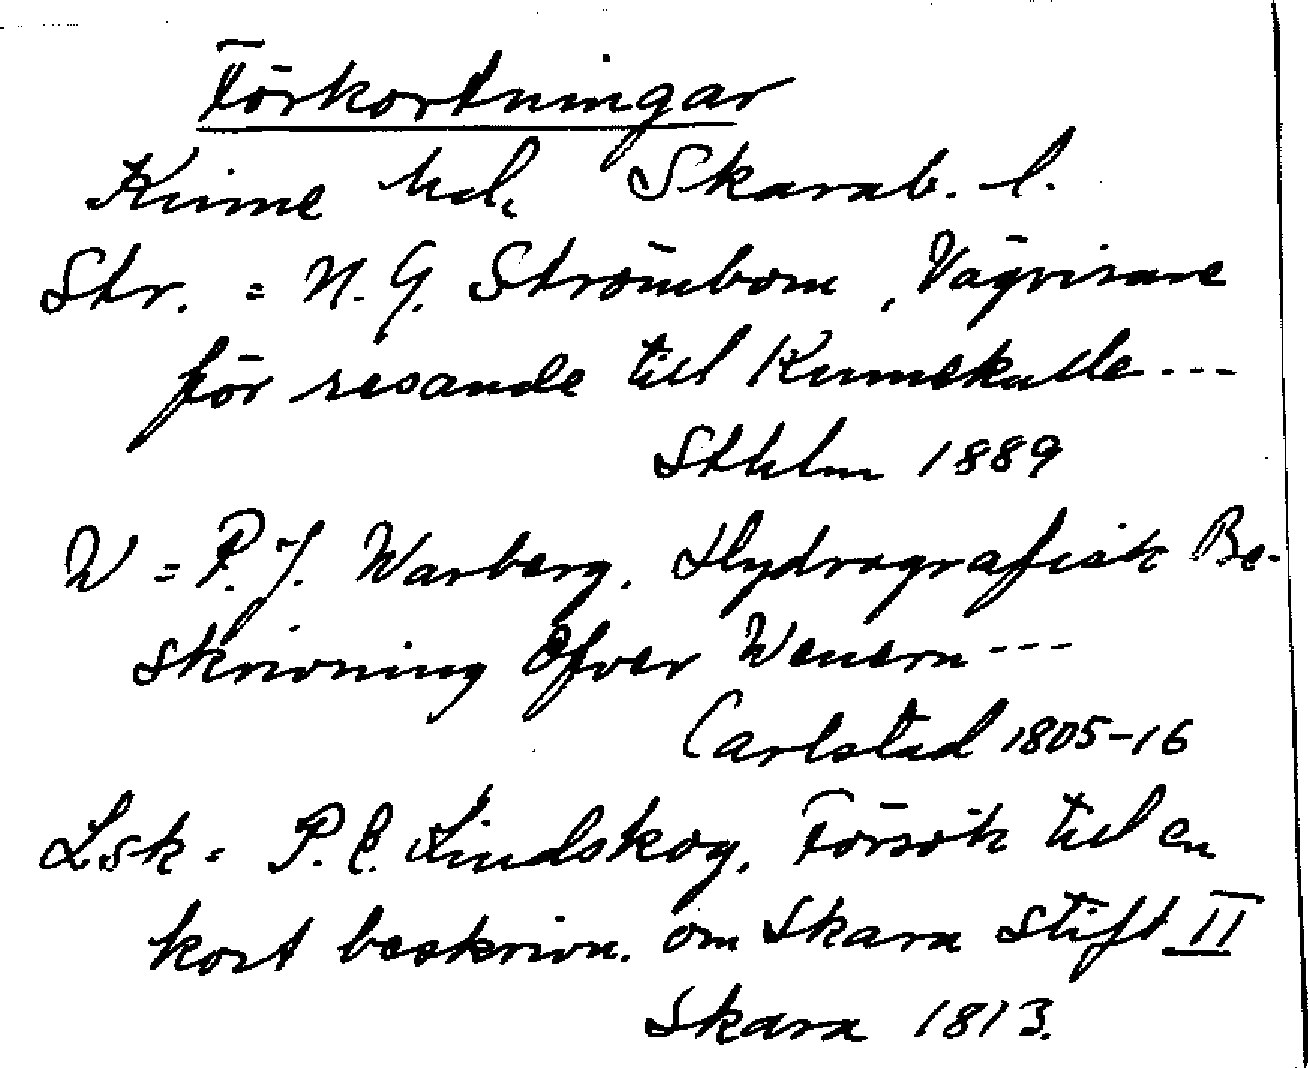 Förkortningar
Kinne hd, Skarab. l.
Str. = N. G. Strömbom, Vägvisare
för resande till Kinnekulle ---
Sthlm 1889
W = P. J. Warberg. Hydrografisk Be-
skrivning Öfver Wenern ---
Carlstad 1805-16
Lsk = P. E. Lindskog. Försök till en
kort beskrivn. om Skara Stift II
Skara 1813.